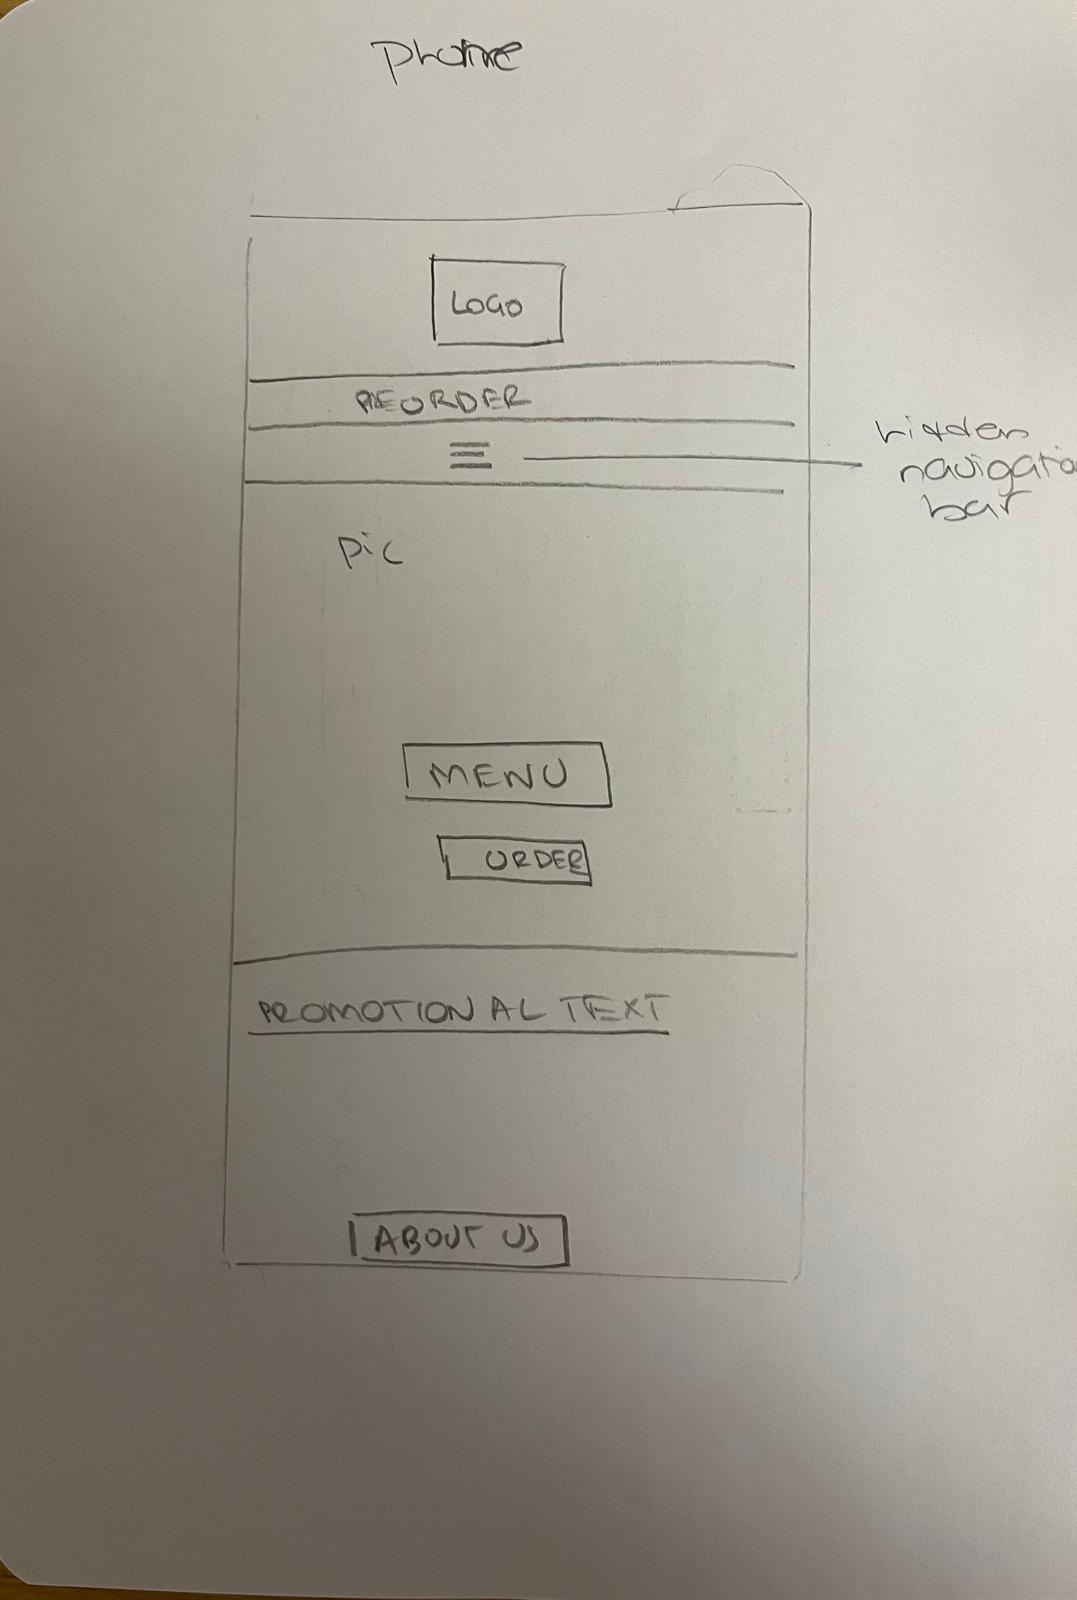 Phone
LOGO
REORDER
hidden
navigatio
bar
Pic
MENU
ORDER
PROMOTIONAL TEXT
ABOUT US